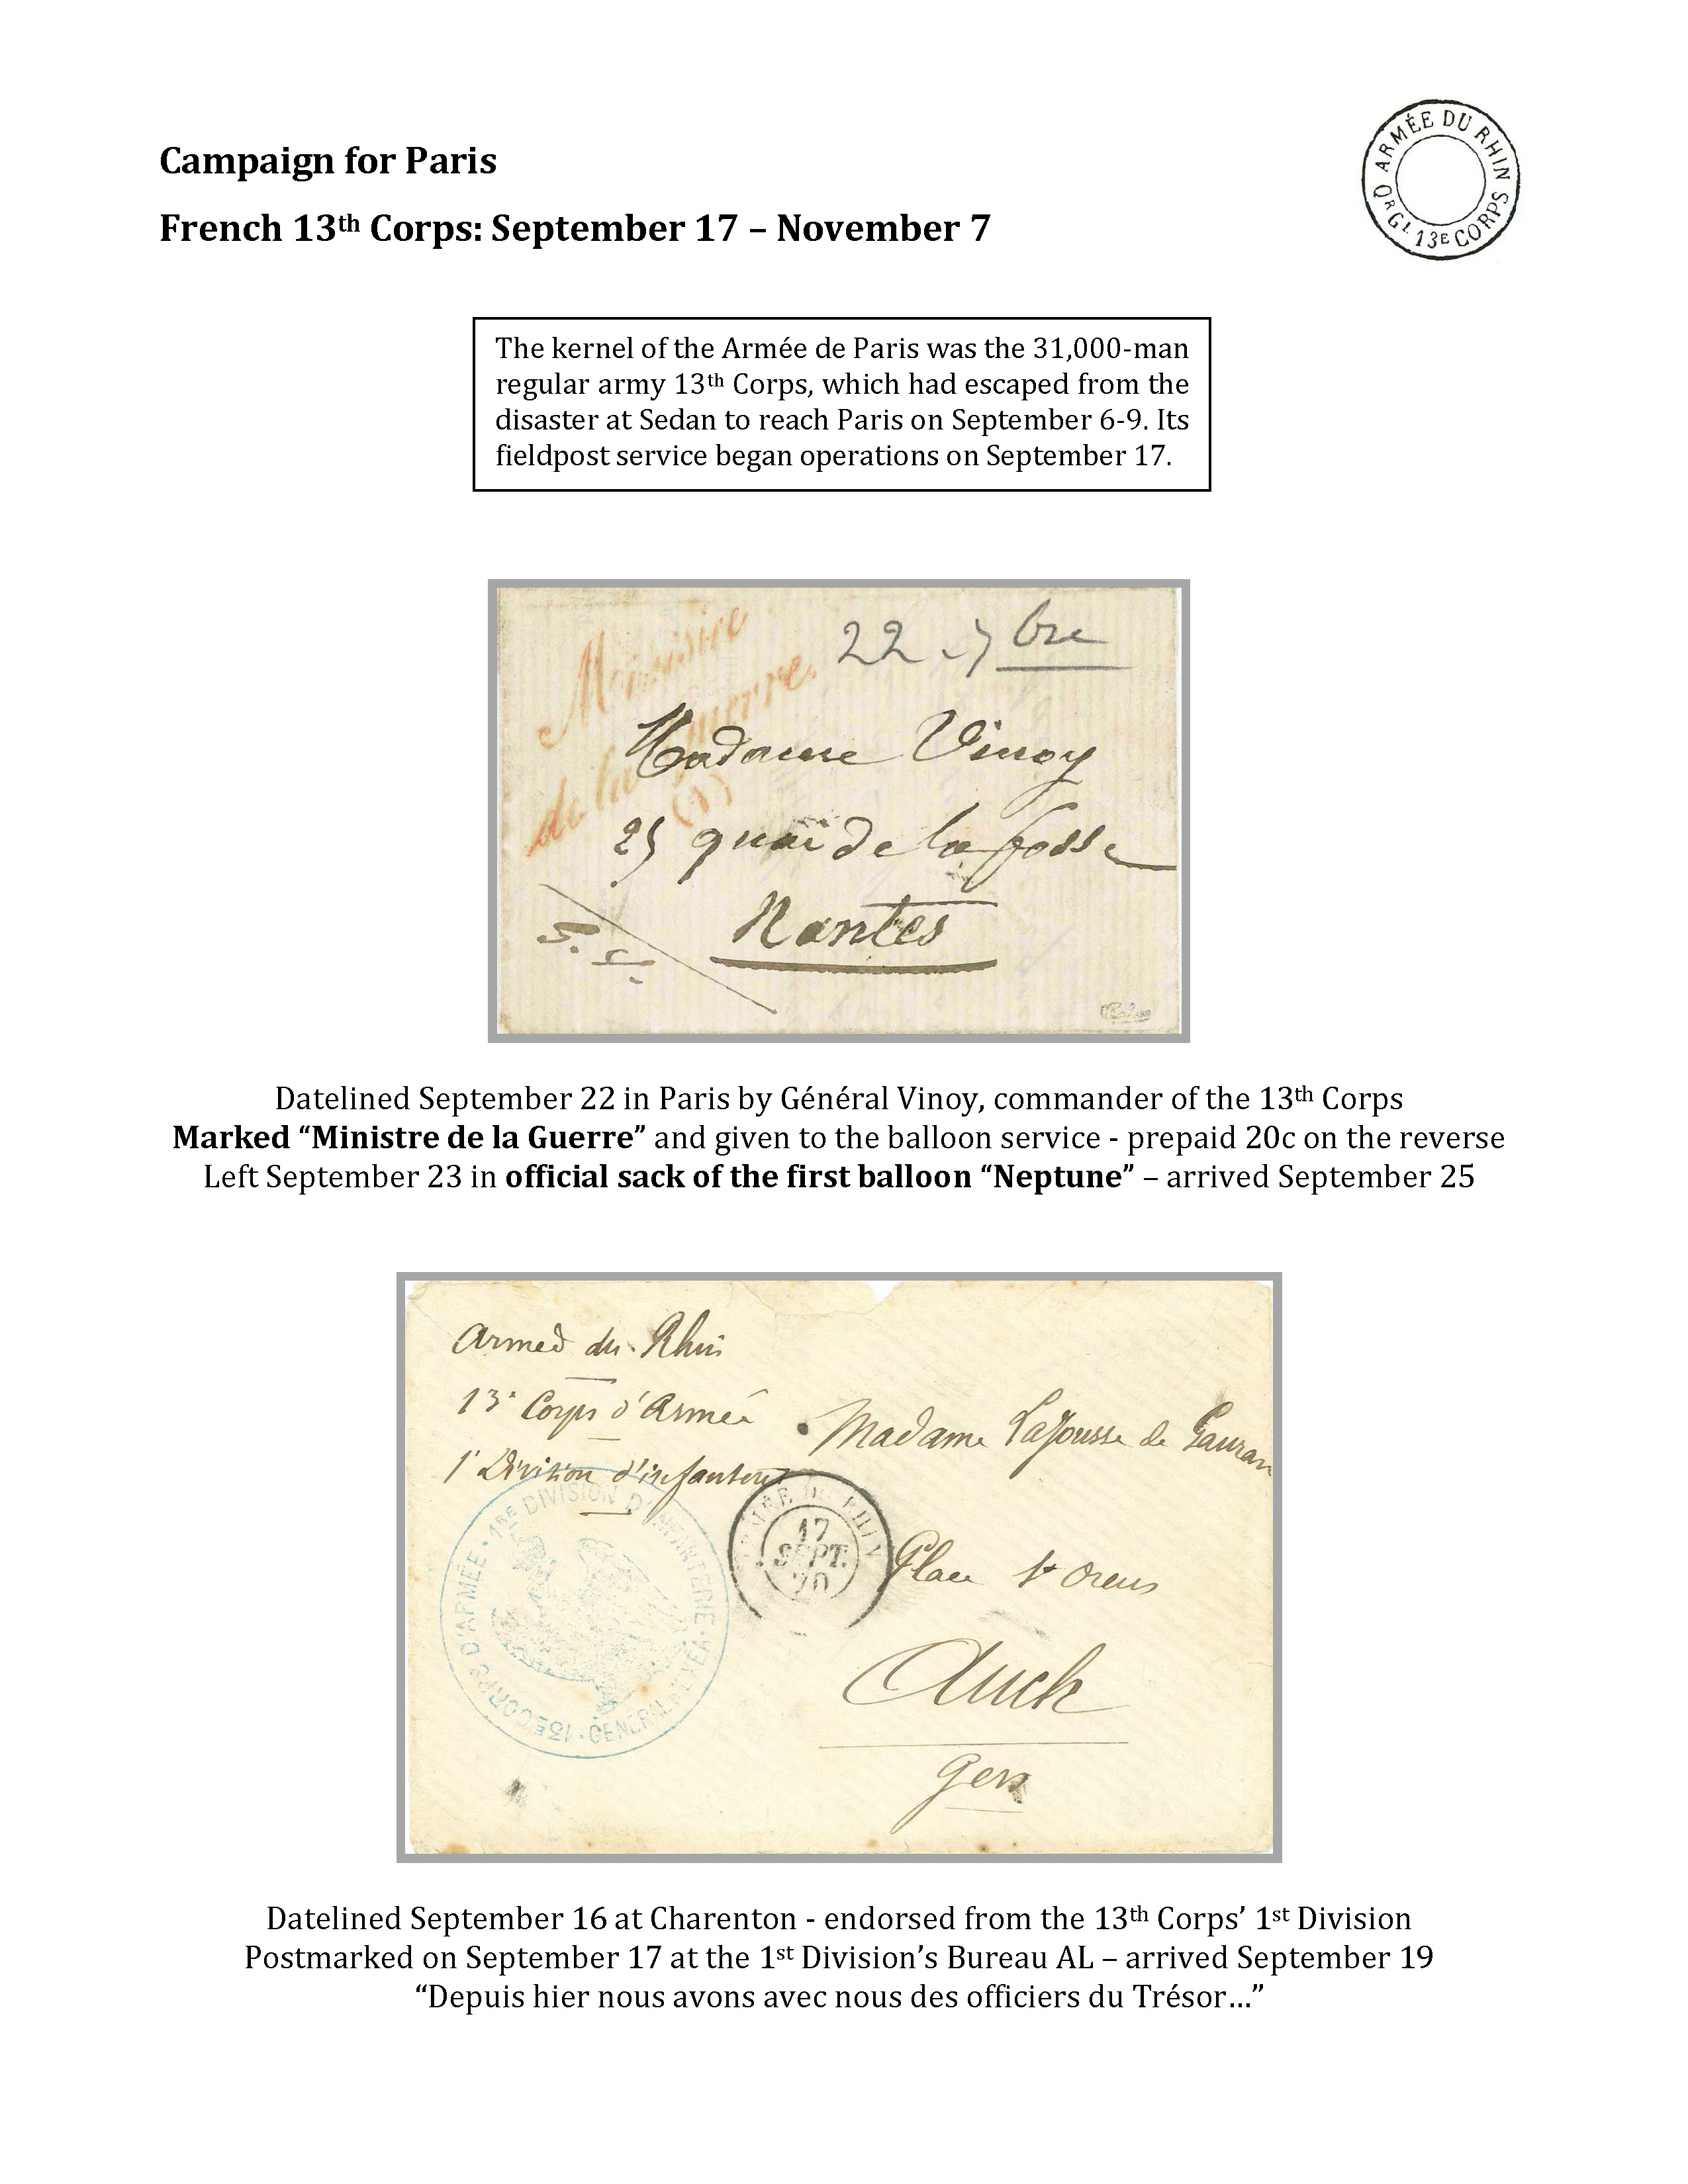 Campaign for Paris
ARMÉE DU RHIN
QR GL 13E CORPS
French 13th Corps: September 17 – November 7
The kernel of the Armée de Paris was the 31,000-man
regular army 13th Corps, which had escaped from the
disaster at Sedan to reach Paris on September 6-9. Its
fieldpost service began operations on September 17.
Ministre
de la guerre
(1)
22 - 7bre
Madame Vinoy
25 quai de la fosse
Nantes
Datelined September 22 in Paris by Général Vinoy, commander of the 13th Corps
Marked “Ministre de la Guerre” and given to the balloon service - prepaid 20c on the reverse
Left September 23 in official sack of the first balloon “Neptune” – arrived September 25
Armée du Rhin
13e Corps d'Armée
1e Division d'infanterie
Madame Lafousse de
Place St Orens
Auch
Gers
ARMÉE DU RHIN
17
SEPT.
70
13E CORPS D'ARMÉE · 1RE DIVISION D'INFANTERIE · GÉNÉRAL D'EXEA ·
Datelined September 16 at Charenton - endorsed from the 13th Corps’ 1st Division
Postmarked on September 17 at the 1st Division’s Bureau AL – arrived September 19
“Depuis hier nous avons avec nous des officiers du Trésor…”